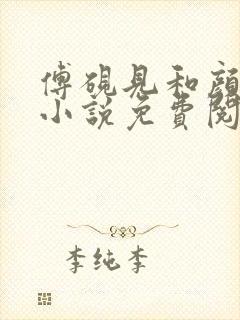 傅砚见和颜
小说免费阅
李纯李